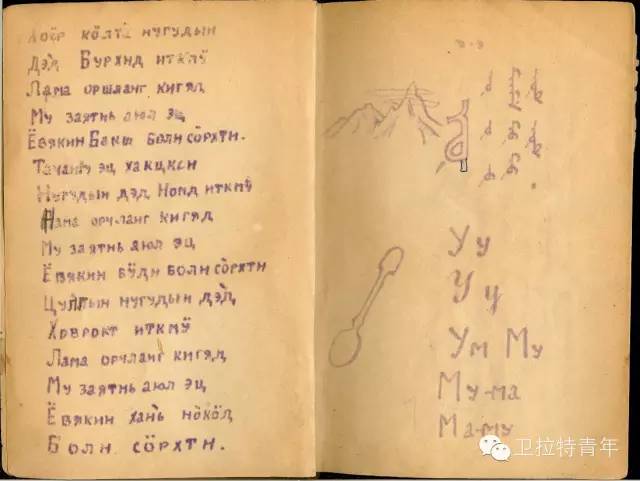 Хоёр кӧлтӓ нугудын
Дэд Бурхнд иткмӱ
Лама оршланг кигяд
Му заятнь аюл эц
Ёвякин Бакш боли сӧрхти.
Тачангу эц хакцкси
Нугудын дэд Номд иткмӱ
Лама орчланг кигяд
Му заятнь аюл эц
Ёвякин вӱди боли сӧрхти
Цулгын нугудын дэд
Ховрокт иткмӱ
Лама орчланг кигяд
Му заятнь аюл эц
Ёвякин хань нӧкӧд
Боли сӧрхти.
У у
У у
Ум Му
Му-ма
Ма-му
卫拉特青年